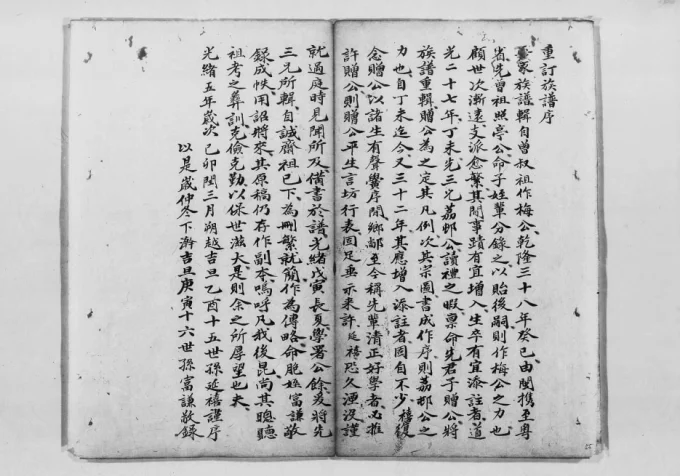 重訂族譜序
吾家族譜輯自曾叔祖作梅公乾隆三十八年癸巳由閩携至粤
省先曾祖照亭公命子姪輩分錄之以貽後嗣則作梅公之力也
顧世次漸遠支派愈繁其間事蹟有宜增入生卒有宜添註者道
光二十七年丁未先三兄荔邨公讀禮之暇稟命先君子贈公將
族譜重輯贈公為之定其凡例次其宗圖書成作序則荔邨公之
力也自丁未迄今又三十二年其應增入添註者固自不少禧復
念贈公以諸生有聲黌序間鄉鄰至今稱先輩清正好學者必推
許贈公則贈公平生言坊行表固足垂示來許延禧恐久湮沒謹
就過庭時見聞所及備書於譜光緒戊寅長夏學署公餘爰將先
三兄所輯自誠齋祖已下為刪繁就簡作為傳略命胞姪富謙敬
錄成帙用詔將來其原稿仍存作副本嗚呼凡我後昆尚其聰聽
祖考之彝訓克儉克勤以保世滋大是則余之所厚望也夫
光緒五年歲次己卯閏三月朔越吉旦乙酉十五世孫延禧謹序
以是歲仲冬下澣吉旦庚寅十六世孫富謙敬錄